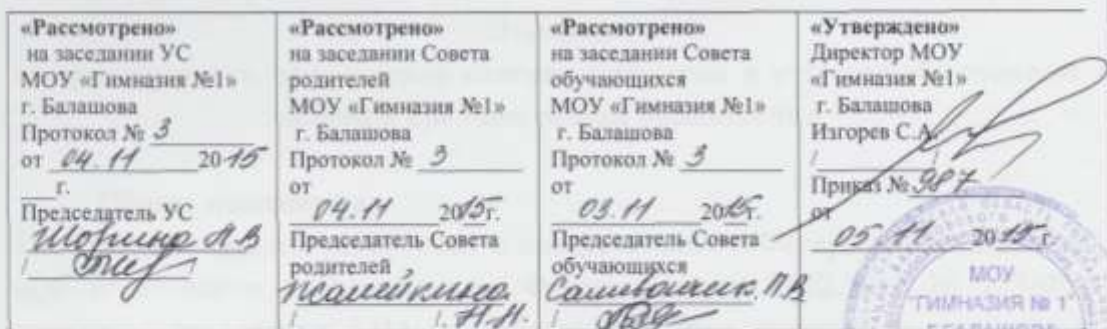 «Рассмотрено»
на заседании УС
МОУ «Гимназия №1»
г. Балашова
Протокол № 3
от 04.11 2015
г.
Председатель УС
Шорина Л.В
/ /
«Рассмотрено»
на заседании Совета
родителей
МОУ «Гимназия №1»
г. Балашова
Протокол № 3
от
04.11 2015г.
Председатель Совета
родителей
/ /. Н.Н.
«Рассмотрено»
на заседании Совета
обучающихся
МОУ «Гимназия №1»
г. Балашова
Протокол № 3
от
03.11 2015г.
Председатель Совета
обучающихся
П.В
/
«Утверждено»
Директор МОУ
«Гимназия №1»
г. Балашова
Изгорев С.А.
/ /
Приказ № 987
от
05.11 2015 г.
МОУ
ГИМНАЗИЯ № 1